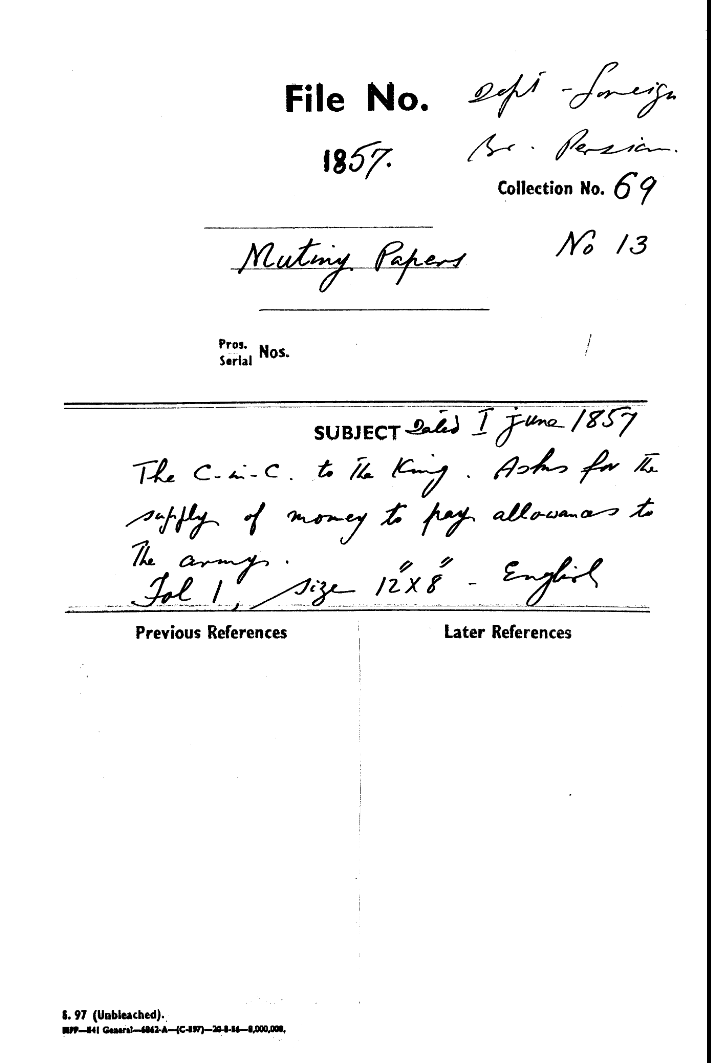 File No. Dept - Foreign
1857. Br. Persian.
Collection No. 69
Mutiny Papers No 13
Pros. Serial Nos.
SUBJECT Dated I June 1857
The C-in-C. to the King. Asks for the
supply of money to pay allowances to
the army.
Fol 1, size 12" X 8" - English
Previous References Later References
S. 97 (Unbleached).
MFP—841 General—6862-A—(C-897)—20-8-56—8,000,000.